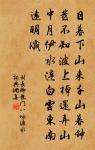 日暮下山來千山暮鐘
發不知波上棹還弄山
中月伊水連白雲東南
遠明滅
劉長卿龍門八詠渡水